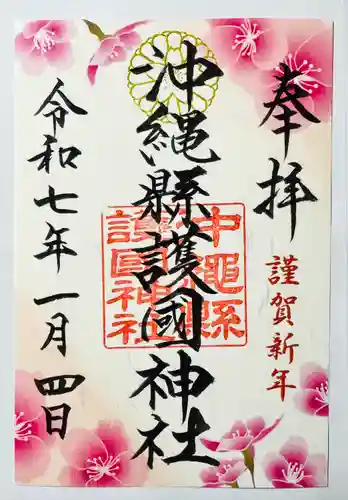 奉拝
謹賀新年
沖縄縣護國神社
沖縄縣護国神社
令和七年一月四日